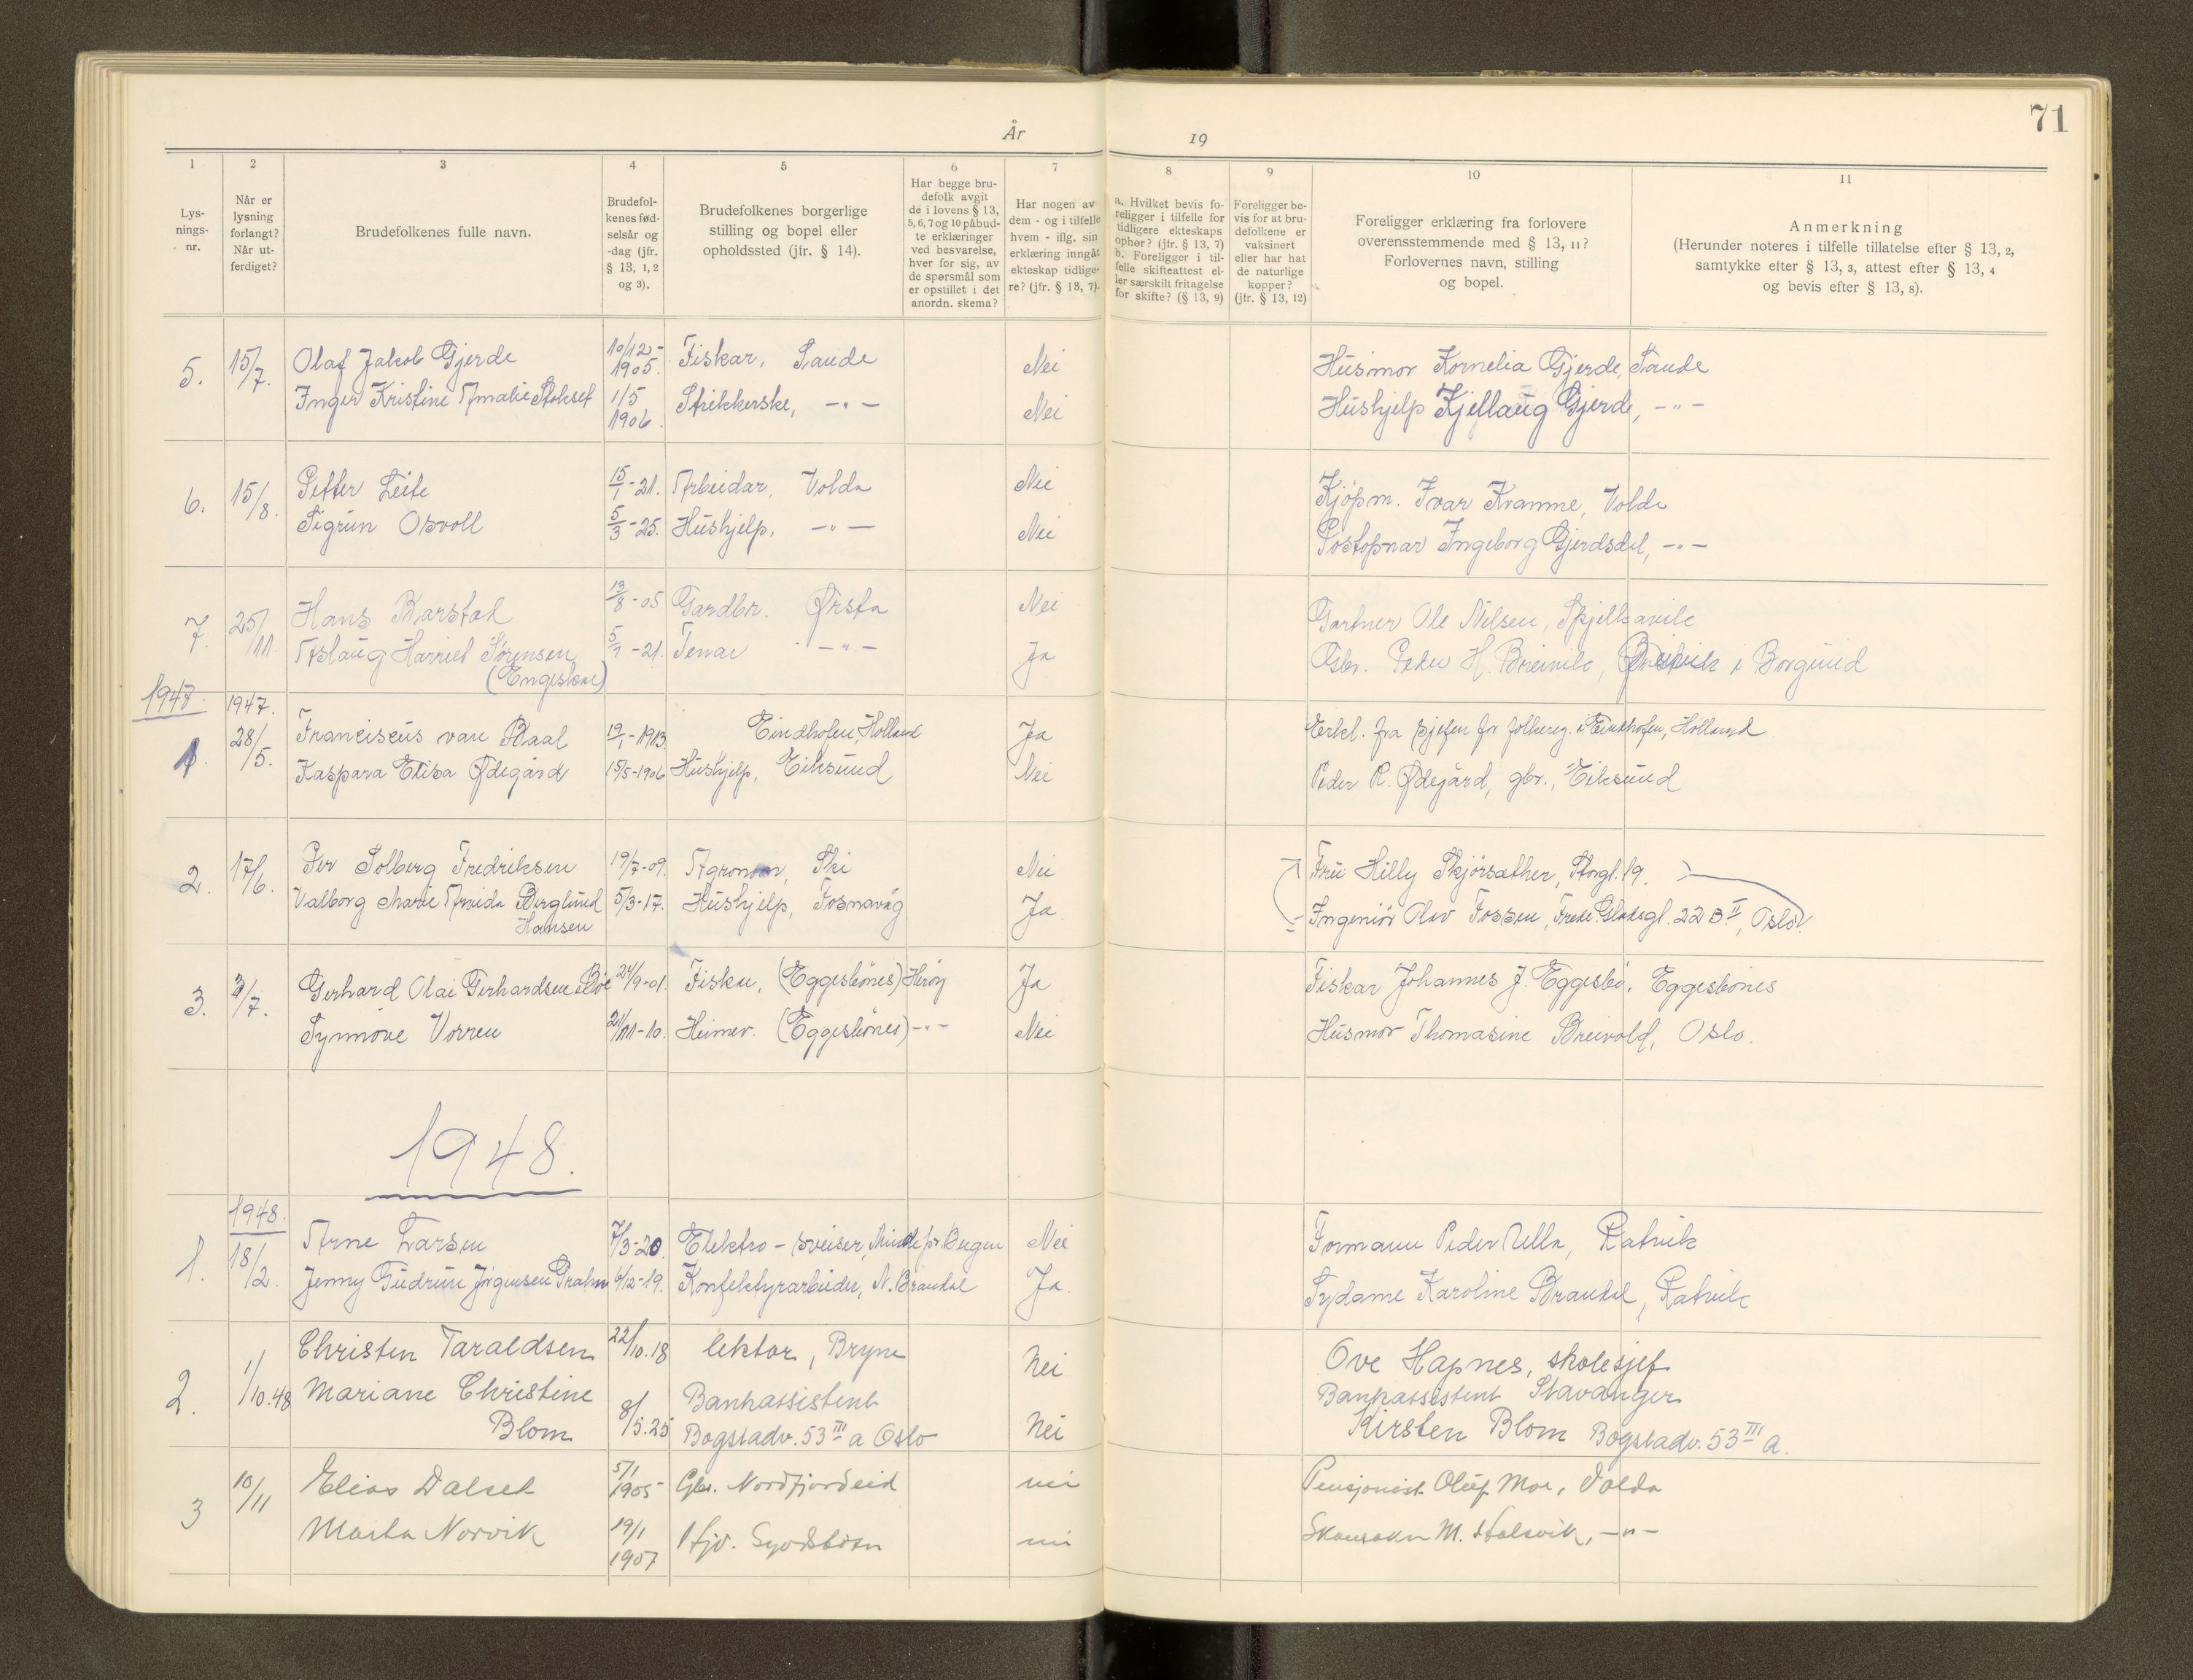 71
År 19
1 2 3 4 5 6 7 8 9 10 11
Lys-
nings-
nr.
Når er
lysning
forlangt?
Når ut-
ferdiget?
Brudefolkenes fulle navn.
Brudefol-
kenes fød-
selsår og
-dag (jfr.
§ 13, 1, 2
og 3).
Brudefolkenes borgerlige
stilling og bopel eller
opholdssted (jfr. § 14).
Har begge bru-
defolk avgit
de i lovens § 13,
5, 6, 7 og 10 påbud-
te erklæringer
ved besvarelse,
hver for sig, av
de spørsmål som
er opstillet i det
anordn. skema?
Har nogen av
dem - og i tilfelle
hvem - iflg. sin
erklæring inngåt
ekteskap tidlige-
re? (jfr. § 13, 7).
a. Hvilket bevis fo-
religger i tilfelle for
tidligere ekteskaps
ophør? (jfr. § 13, 7)
b. Foreligger i til-
felle skifteattest el-
ler særskilt fritagelse
for skifte? (§ 13, 9)
Foreligger be-
vis for at bru-
defolkene er
vaksinert
eller har hat
de naturlige
kopper?
(jfr. § 13, 12)
Foreligger erklæring fra forlovere
overensstemmende med § 13, 11?
Forlovernes navn, stilling
og bopel.
Anmerkning
(Herunder noteres i tilfelle tillatelse efter § 13, 2,
samtykke efter § 13, 3, attest efter § 13, 4
og bevis efter § 13, 8).
5. 15/7. Olaf Jakob Gjerde 10/12-1905. Fiskar, Sande Nei Husmor Kornelia Gjerde, Sande
Inger Kristine Amalie Stokset 1/5 1906. Strikkerske, -"- Nei Hushjelp Kjellaug Gjerde, -"-
6. 15/8. Petter Leite 15/1-21. Arbeidar, Volda Nei Kjøpm. Ivar Kramme, Volda
Sigrun Osvoll 5/3-25. Hushjelp, -"- Nei Postopnar Ingeborg Gjerdsdal, -"-
7. 25/11 Hans Barstad 13/8-05 Gardbr. Ørsta Nei Gartner Ole Nilsen, Spjelkavik
Aslaug Harriet Sørensen 5/7-21. -"- Ja Gbr. Peder H. Breivik, Breivik i Borgund
(Engeskar)
1947. 1947.
1. 28/5. Franciscus van Baal 19/1-1913 Eindhofen, Holland Ja Erkl. fra sjefen for folkereg. i Eindhofen, Holland
Kaspara Elisa Ødegård 15/5-1906 Hushjelp, Eiksund Nei Peder R. Ødegård, gbr., Eiksund
2. 17/6. Per Solberg Fredriksen 19/7-09. Agronom, Ski Nei Fru Hilly Skjørsæther, Storgt. 19.
Valborg Marie Arnida Berglund 5/3-17. Hushjelp, Fosnavåg Ja Ingeniør Olav Fossen, 22 B II, Oslo.
Hansen
3. 3/7. Gerhard Olai Gerhardsen Bøe 24/9-01. Fisker, (Eggesbønes) Herøy Ja Fiskar Johannes J. Eggesbø, Eggesbønes
Synnøve Vorren 21/11-10. Heimev. (Eggesbønes) -"- Nei Husmor Thomasine Breivold, Oslo.
1948.
1948.
1. 18/2. Arne Larsen 7/3-20. Elektro-sveiser, Minde pr. Bergen Nei Formann Peder Ulla, Ratvik
Jenny Gudrun Jørgensen 6/12-19. Konfektyrarbeider, N. Brandal Ja. Sydame Karoline Brandal, Ratvik
2. 1/10.48 Christen Taraldsen 22/10.18 lektor, Bryne Nei Ove Hapnes, skolesjef
Mariane Christine Bankassistent Bankassistent Stavanger
Blom 8/5.25 Bogstadv. 53 III a Oslo Nei Kirsten Blom Bogstadv. 53 III a.
3 10/11 Elias Dalset 5/1 1905 Gbr. Nordfjordeid nei Pensjonist Oluf Moe, Volda
Marta Norvik 19/1 1907 nei M. Halsvik, -"-